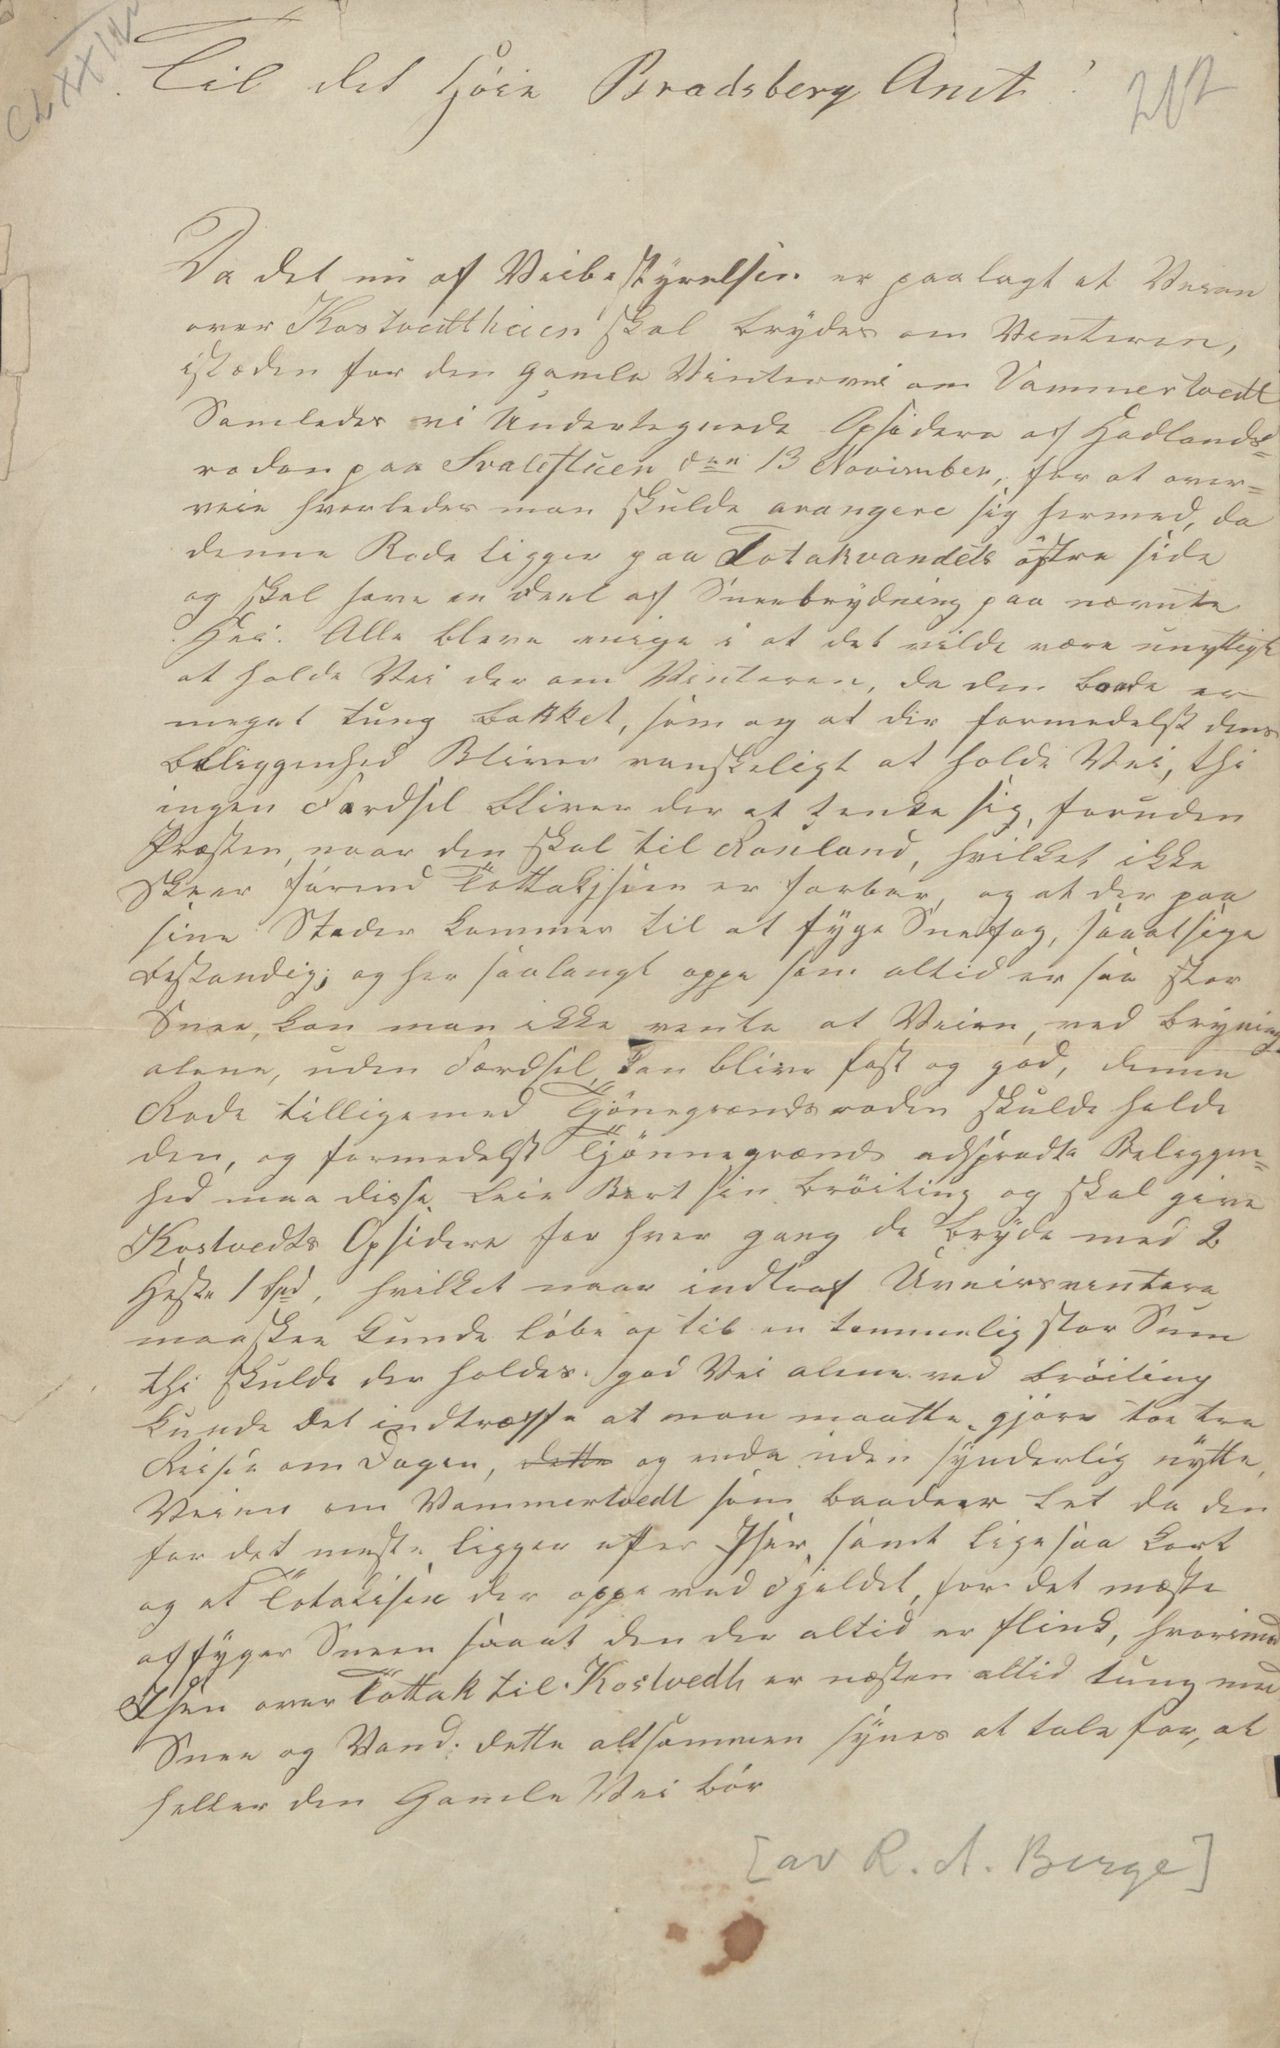 CLXXIV
Til det höie Bradsberg Amt!
212
Da det nu af Veibestÿrelsen er paalagt at Veien
over Kostvedtheien skal brÿdes om Venteren,
istæden for den gamle Vintervei om Vammertvedt
Samledes vi Undertegnede Opsidere af Hadlands=
roden paa Svalestuen den 13 November, for at over=
veie hvorledes man skulde arangere sig hermed, da
denne Rode ligger paa Totakvandets östre side
og skal have en deel af Sneebrÿdning paa nævnte
Hei. Alle bleve enige i at det vilde være unÿttigt
at holde Vei der om Vinteren, da den baade er
meget tung bakket, som og at der formedelst dens
Beliggenhed Bliver vanskeligt at holde Vei, thi
ingen Færdsel bliver der at tenke sig, foruden
Præsten, naar den skal til Rauland, hvilket ikke
Skeer förend Tottakjsien er farbar, og at der paa
sine Steder kommer til at fÿge Snefog, saaatsige
bestandig; og her saalangt oppe som altid er saa stor
Snee, kan man ikke vente at Veien, ved brÿning
alene, uden Færdsel, kan blive fast og god, denne
Rode tilligemed Tjönegrændsroden skulde holde
den, og formedelst Tjönnegrænds adspredte Beleggen=
hed maa disse leie Bort sin bröiting og skal give
Kostvedts Opsidere for hver gang de brÿde med 2
Heste 1 Spd, hvilket naar indtraf Uveirsventere
maaskee kunde löbe op til en temmelig stor Sum
thi skulde der holdes god Vei alene ved bröiting
kunde det indtræffe at man maatte gjöre toe tre
Reiser om Dagen, dette og enda uden sÿnderlig nÿtte,
Veien om Vammertvedt som baade er let da den
for det meste ligger efter Iser, samt ligesaa kort
og at Totakisen der oppe ved Fjeldet, for det mæste
affÿger Sneen saaat den der altid er flink, hvorimod
Isen over Tottak til Kostvedt er næsten altid tung med
Snee og Vand. dette altsammen sÿnes at tale for, at
heller den Gamle Vei bör
[av R. A. Berge]